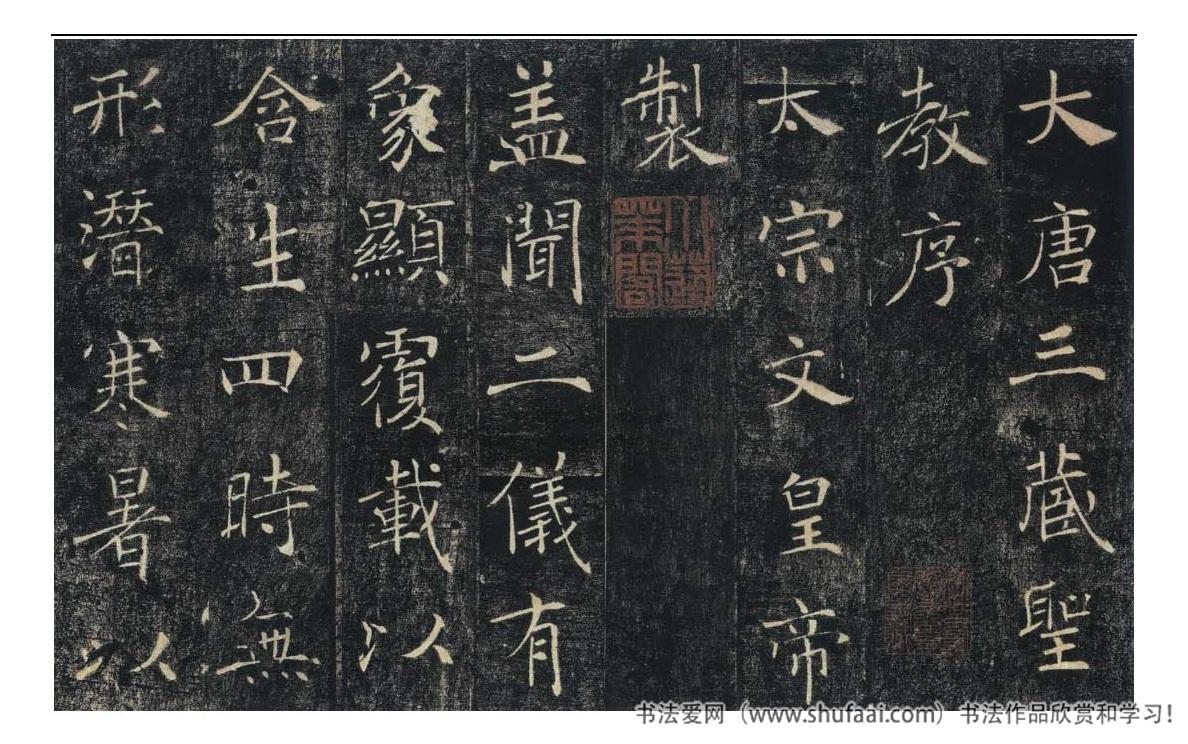 大唐三蔵聖
教序
太宗文皇帝
製
盖聞二儀有
象顯覆載以
含生四時無
形潛寒暑以
书法爱网（www.shufaai.com）书法作品欣赏和学习！